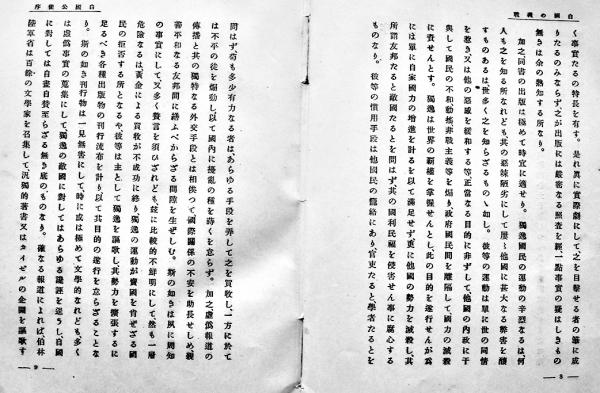 白國の義戰
く事實たるの特長を有す。是れ眞に實際劇にして、之を目擊せる者の筆に成
りたるのみならず、之が出版には嚴密なる照査を經、一點事實の疑はしきもの
無きは余の熟知する所なり。
加之同書の出版は極めて時宜に適せり。獨逸國民の運動の辛烈なるは、何
人も之を知る所なれども、其の惡辣陋劣にして屢〻他國に甚大なる弊害を釀
すものあるは、世多く之を知らざるものゝ如し。彼等の運動は單に世の同情
を惹き、又は他の惡感を緩和する等正當なる目的に非ずして、他國の內政に干
與して國民の不和動搖非戰主義等を煽り、政府國民間を離隔して國力の減殺
に資せんとす。獨逸は世界の覇權を掌握せんとし、此の目的を遂行せんが爲
には單に自家國力の增進を計るを以て滿足せず、更に他國の勢力を減殺し、其
所謂友邦たると敵國たるとを問はず其の國利民福を侵害せん事に腐心する
ものなり。彼等の慣用手段は他國民の籠絡にあり、官吏たると、學者たるとを
8
白國公使序
問はず、苟も多少有力なる者はあらゆる手段を弄して之を買收し、一方に於て
は不平の徒を煽動し以て國內に擾亂の種を蒔くを怠らず。加之虛僞報道の
傳播と其の獨特なる外交手段とは相俟つて國際關係の不安を助長せしめ、親
善平和なる友邦間に繕ふべからざる間隙を生ぜしむ。斯の如きは夙に周知
の事實にして、又多く贅言を須ひざれども、玆に比較的不鮮明にして、然も一層
危險なるは黃金による買收が不成功に終り獨逸の運動が賣國を肯ぜざる國
民の拒否する所となるや、彼等は主として獨逸を謳歌し其勢力を擴張するに
足るべき各種出版物の刊行流布を計り以て其目的の遂行を怠らざることな
り。斯の如き刊行物は一見無害にして、時に或は極めて文學的なれども、多く
は虛僞事實の蒐集にして、獨逸の敵國に對してはあらゆる讒誣を逞うし、自國
に對しては自畫自贊至らざる無き底のものなり。確なる報道によれば伯林
陸軍省は百餘の文學家を召集して、汎獨的著書又はカイゼルの企圖を謳歌す
9